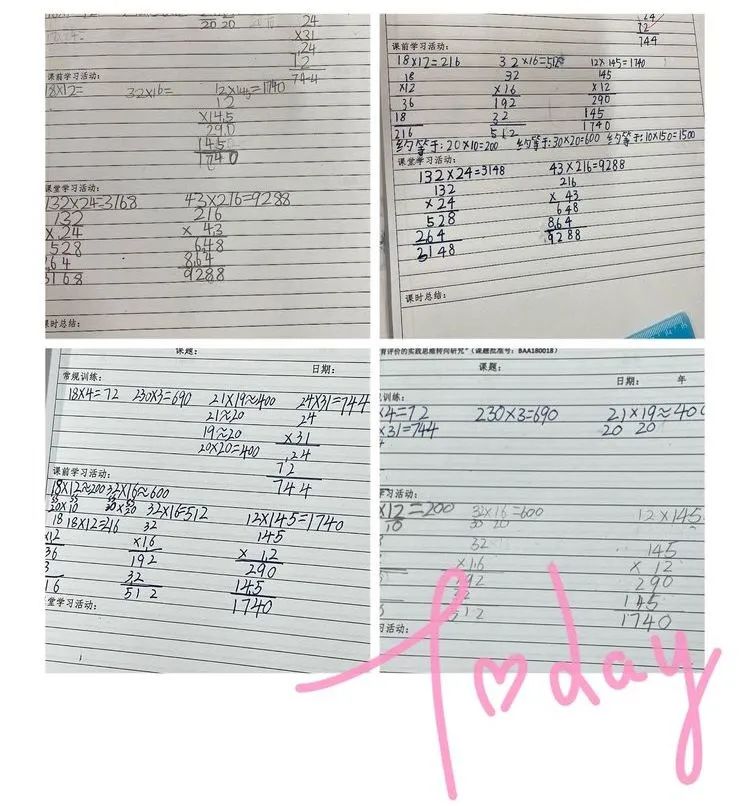 20 20
24
×31
24
12
744
课前学习活动:
18×12=
32×16=
12×145=1740
12
×145
290
145
1740
课堂学习活动:
132×24=3168
43×216=9288
132
×24
528
264
3168
216
×43
648
864
9288
课时总结:
24
12
744
课前学习活动:
18×12=216
32×16=512
12×145=1740
18
×12
36
18
216
32
×16
192
32
512
145
×12
290
145
1740
约等于:20×10=200
约等于:30×20=600
约等于:10×150=1500
课堂学习活动:
132×24=3148
43×216=9288
132
×24
528
264
3148
216
×43
648
864
9288
课时总结:
课题:
常规训练:
日期:
18×4=72
230×3=690
21×19≈400
24×31=744
21≈20
19≈20
20×20=400
24
×31
24
72
744
课前学习活动:
18×12≈200
32×16≈600
20×10
30×20
18×12=216
32×16=512
12×145=1740
18
×12
36
16
32
×16
192
32
512
145
×12
290
145
1740
堂学习活动:
育评价的实践思维转向研究"(课题批准号:BAA180018)
课题:
日期: 年
训练:
×4=72
230×3=690
21×19≈400
×31=744
20 20
学习活动:
×12=200
10
32×16=600
30 20
12×145
32
×16
192
32
512
145
×12
290
145
1740
习活动:
Today